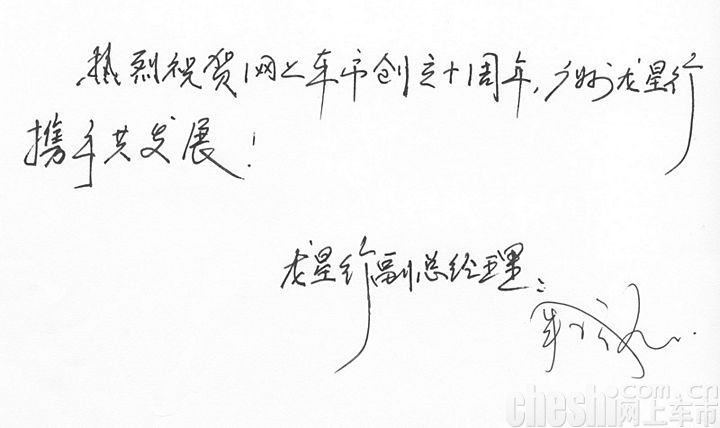 热烈祝贺网上车市创立十周年,广州龙星行
携手共发展!
龙星行副总经理:
cheshi.com.cn
网上车市